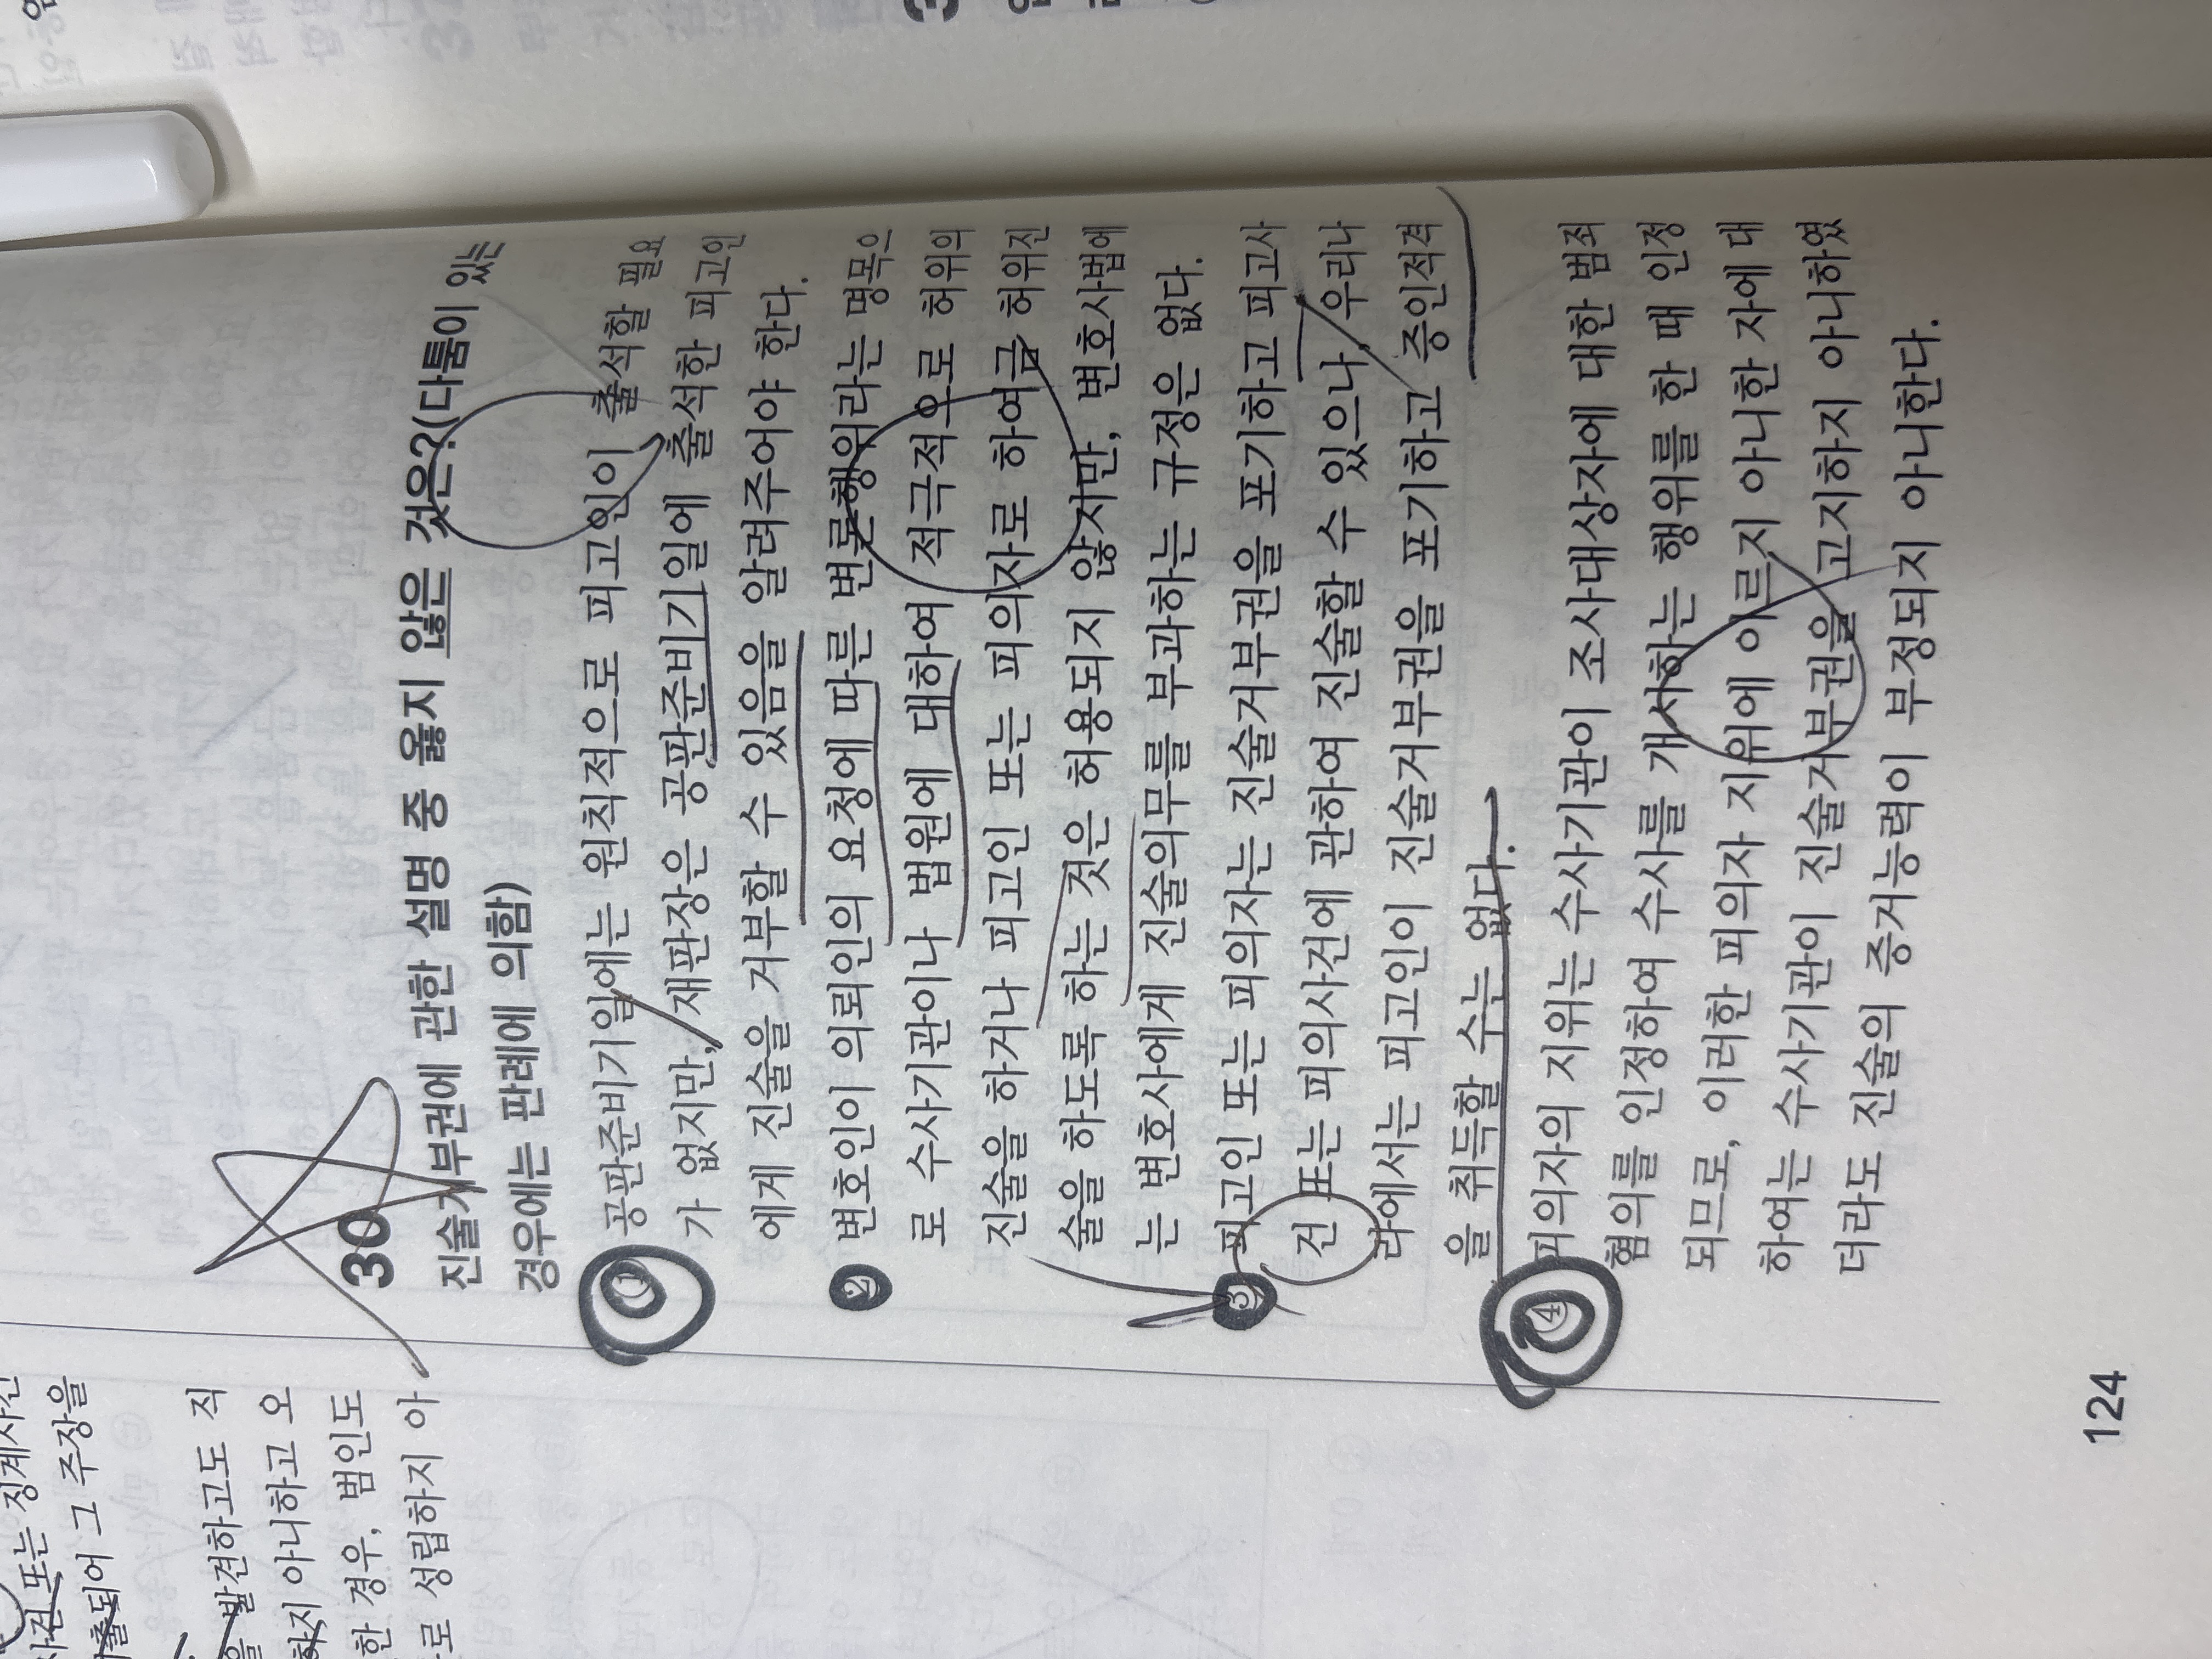 사건 또는 징계사건
제출되어 그 주장을
을 발견하고도 직
하지 아니하고 오
한 경우, 범인도
로 성립하지 아
30
진술거부권에 관한 설명 중 옳지 않은 것은?(다툼이 있는
경우에는 판례에 의함)
① 공판준비기일에는 원칙적으로 피고인이 출석할 필요
가 없지만, 재판장은 공판준비기일에 출석한 피고인
에게 진술을 거부할 수 있음을 알려주어야 한다.
② 변호인이 의뢰인의 요청에 따른 변론행위라는 명목으
로 수사기관이나 법원에 대하여 적극적으로 허위의
진술을 하거나 피고인 또는 피의자로 하여금 허위진
술을 하도록 하는 것은 허용되지 않지만, 변호사법에
는 변호사에게 진술의무를 부과하는 규정은 없다.
③ 피고인 또는 피의자는 진술거부권을 포기하고 피고사
건 또는 피의사건에 관하여 진술할 수 있으나, 우리나
라에서는 피고인이 진술거부권을 포기하고 증인적격
을 취득할 수는 없다.
④ 피의자의 지위는 수사기관이 조사대상자에 대한 범죄
혐의를 인정하여 수사를 개시하는 행위를 한 때 인정
되므로, 이러한 피의자 지위에 이르지 아니한 자에 대
하여는 수사기관이 진술거부권을 고지하지 아니하였
더라도 진술의 증거능력이 부정되지 아니한다.
124